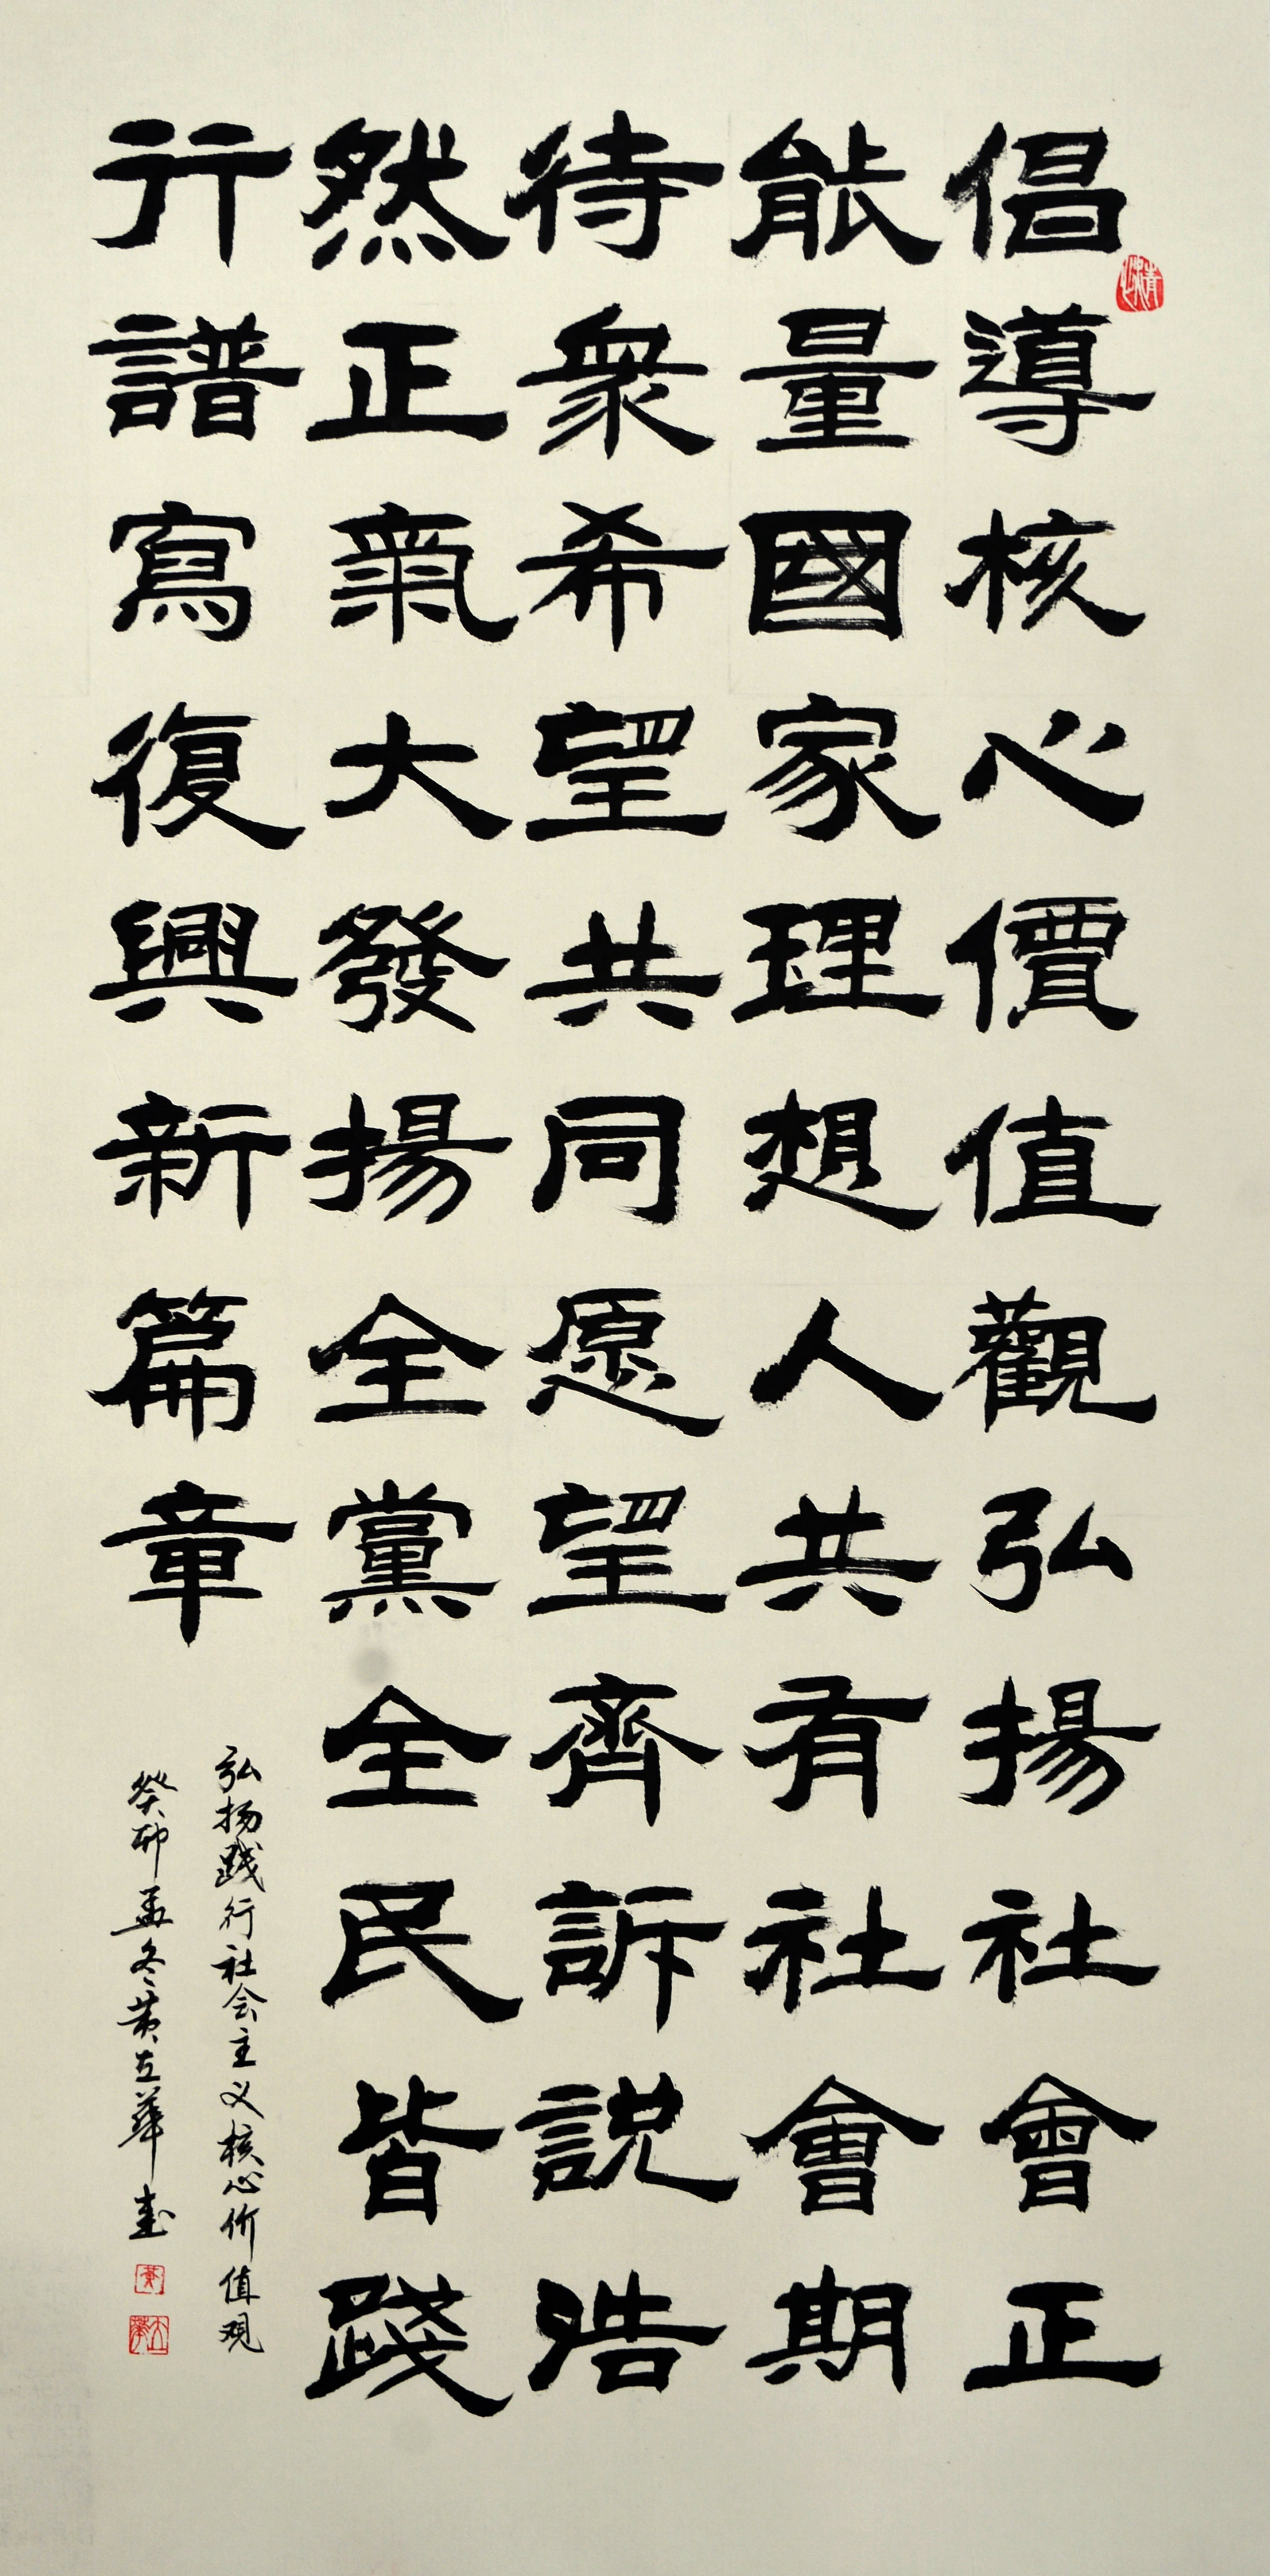 倡導核心價值觀弘揚社會正
能量國家理想人共有社會期
待衆希望共同愿望齊訴説浩
然正氣大發揚全黨全民皆踐
行譜寫復興新篇章
弘扬践行社会主义核心价值观
癸卯孟冬黄立華书